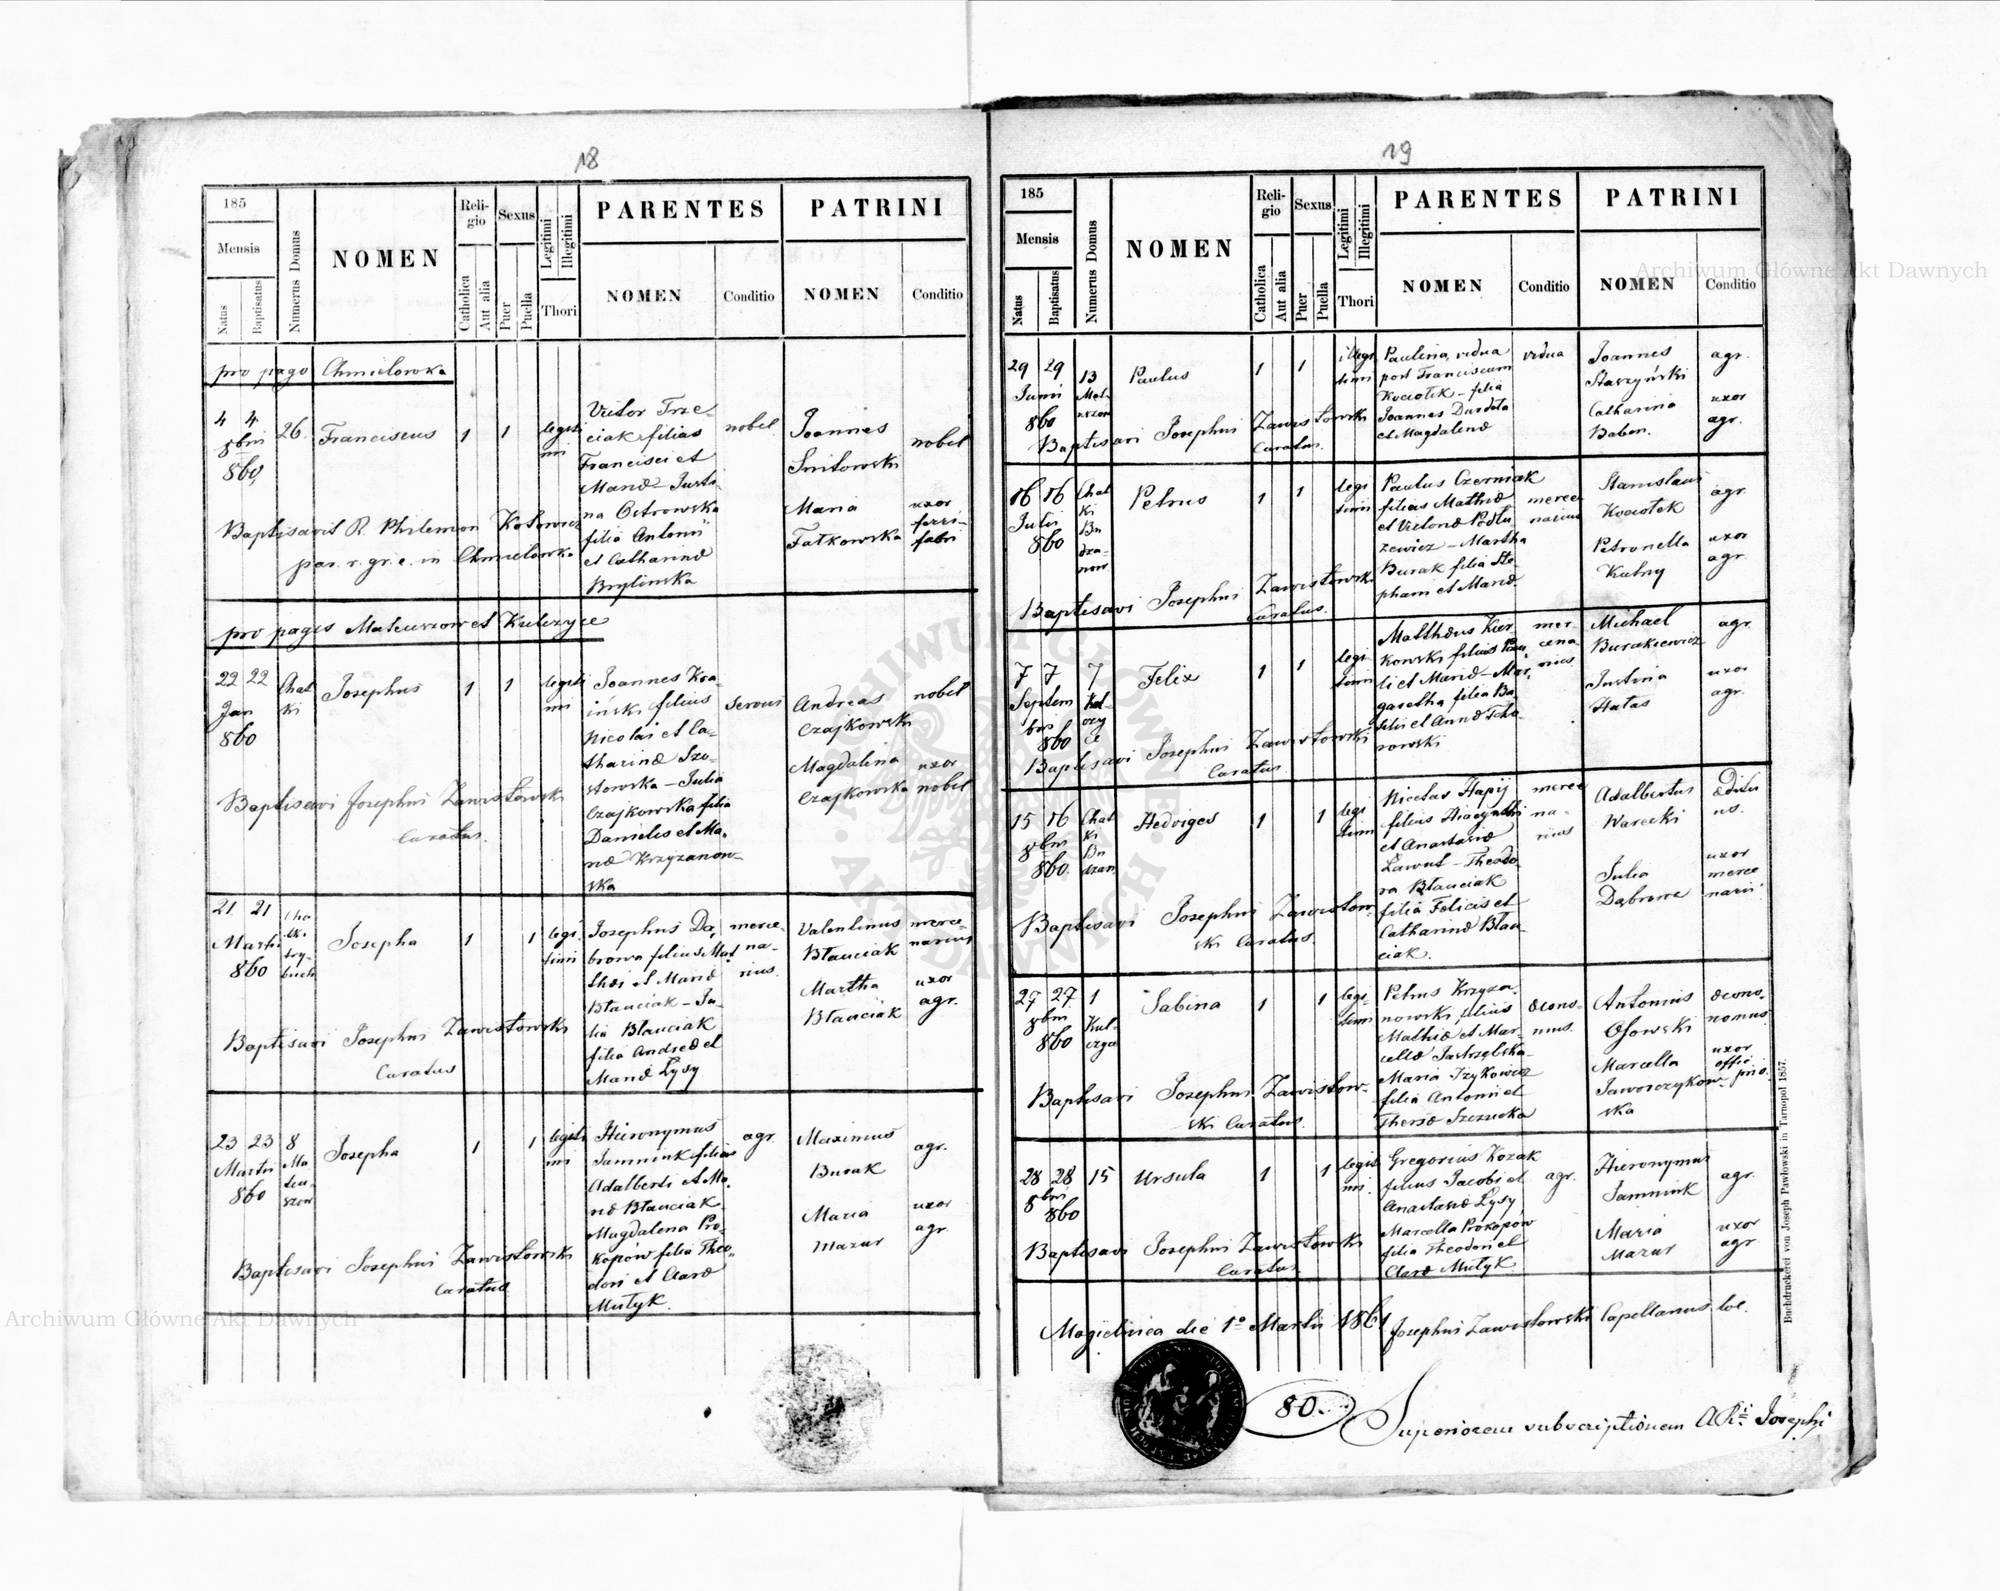 18
185
Mensis
Natus
Baptisatus
Numerus Domus
NOMEN
Reli-
gio
Catholica
Aut alia
Sexus
Puer
Puella
Legitimi
Illegitimi
Thori
PARENTES
NOMEN
Conditio
PATRINI
NOMEN
Conditio
pro pago Chmielowka
4 4
8bris
860
26
Franciscus
1
1
legiti
mi
Victor Trze-
ciak filius
Francisci et
Mariæ – Justi-
na Ostrowska
filia Antonii
et Catharinæ
Brylinska
nobil
Joannes
Smitowski
nobil
Maria
Fałkowska
uxor
ferri-
fabri
Baptisavit R. Philemon Kotowicz
par. r. gr. c. in Chmielowka
pro pagis Mateuszow et Kulczyce
22 22
Jan
860
Chat
ki
Josephus
1
1
legiti
mi
Joannes Kra-
iński filius
Nicolai et Ca-
tharinæ Szo-
towska – Julia
Czajkowska filia
Danielis et Ma-
riæ Krzyzanow-
ska
servus
Andreas
Czajkowski
nobil
Magdalena
Czajkowska
uxor
nobil
Baptisavi Josephus Zawisłowski
Curatus.
21 21
Martii
860
Josepha
1
1
legi
timi
Josephus Da,
browa filius Mat
thæi et Mariæ
Błauciak – Ju-
lia Błauciak
filia Andreæ et
Mariæ Łysy
merce-
na-
rius.
Valentinus
Błauciak
merce-
narius
Martha
Błauciak
uxor
agr.
Baptisavi Josephus Zawisłowski
Curatus
23 23
Martii
860
8
Ma
teu-
szow
Josepha
1
1
legiti
mi
Hieronymus
Jamniuk filius
Adalberti et Ma-
riæ Błauciak
Magdalena Pro-
kopów filia Theo-
dori et Claræ
Mułyk.
agr.
Maximus
Burak
agr.
Maria
Mazur
uxor
agr.
Baptisavi Josephus Zawisłowski
Curatus
19
185
Mensis
Natus
Baptisatus
Numerus Domus
NOMEN
Reli-
gio
Catholica
Aut alia
Sexus
Puer
Puella
Legitimi
Illegitimi
Thori
PARENTES
NOMEN
Conditio
PATRINI
NOMEN
Conditio
29 29
Junii
860
13
Paulus
1
1
illegi
timi
Paulina, vidua
post Franciscum
Kociołek – filia
Joannes Durdela
et Magdalenæ
vidua
Joannes
Starzyński
agr.
Catharina
Baben.
uxor
agr.
Baptisavi Josephus Zawisłowski
Curatus.
16 16
Julii
860
Chat
ki
Bu
dza-
now
Petrus
1
1
legi
timi
Paulus Czerniak
filius Mathiæ
et Victoriæ Podłu
zewicz – Martha
Burak filia Ste-
phani et Mariæ.
merce
narius
Stanislaus
Kociołek
agr.
Petronella
Kutny
uxor
agr.
Baptisavi Josephus Zawisłowski
Curatus.
7 7
Septem
bris
860
7
Kul-
czy
ce
Felix
1
1
legi
timi
Matthæus Kier-
kowski filius Pau
li et Mariæ – Mar,
garetha filia Ba-
silii et Annæ Tcho-
rowski
mer-
cena
rius.
Michael
Burakiewicz
agr.
Justina
Hałas
uxor
agr.
Baptisavi Josephus Zawisłowski
Curatus
15 16
8bris
860.
Chat
ki
Bu
dzan.
Hedviges
1
1
legi
timi
Nicolas Hapij
filius Hiacynthi
et Anastasiæ
Ławuł – Theodo-
ra Błauciak
filia Felicis et
Catharinæ Błau-
ciak.
merce
na-
rius
Adalbertus
Warecki
Æditu
us.
Julia
Dąbrowa
uxor
merce
narii
Baptisavi Josephus Zawisłow-
ski Curatus.
27 27
8bris
860
1
Kul-
czyce
Sabina
1
1
legi-
timi
Petrus Krzyza-
nowski filius
Mathiæ et Mar-
cellæ Jastrzębska-
Maria Izykowicz
filia Antonii et
Theresæ Szczucka
œcono-
mus.
Antonius
Ossowski
œcono-
nomus
Marcella
Jaworczykow-
ska
uxor
Baptisavi Josephus Zawisłow-
ski Curatus.
28 28
8bris
860
15
Ursula
1
1
legiti
mi.
Gregorius Kozak
filius Jacobi et
Anastasiæ Łysy
Marcella Prokopów
filia Theodori et
Claræ Mułyk.
agr.
Hieronymus
Jamniuk
agr.
Maria
Mazur
uxor
agr.
Baptisavi Josephus Zawisłowski
Curatus
Mogielnica die 1º Martii 1861 Josephus Zawisłowski Capellanus loc.
80.
Superiorem subscriptionem A. R. Josephi
Buchdruckerei von Joseph Pawłowski in Tarnopol 1857.
Archiwum Główne Akt Dawnych
Archiwum Główne Akt Dawnych
ARCHIWUM GŁÓWNE
AKT DAWNYCH